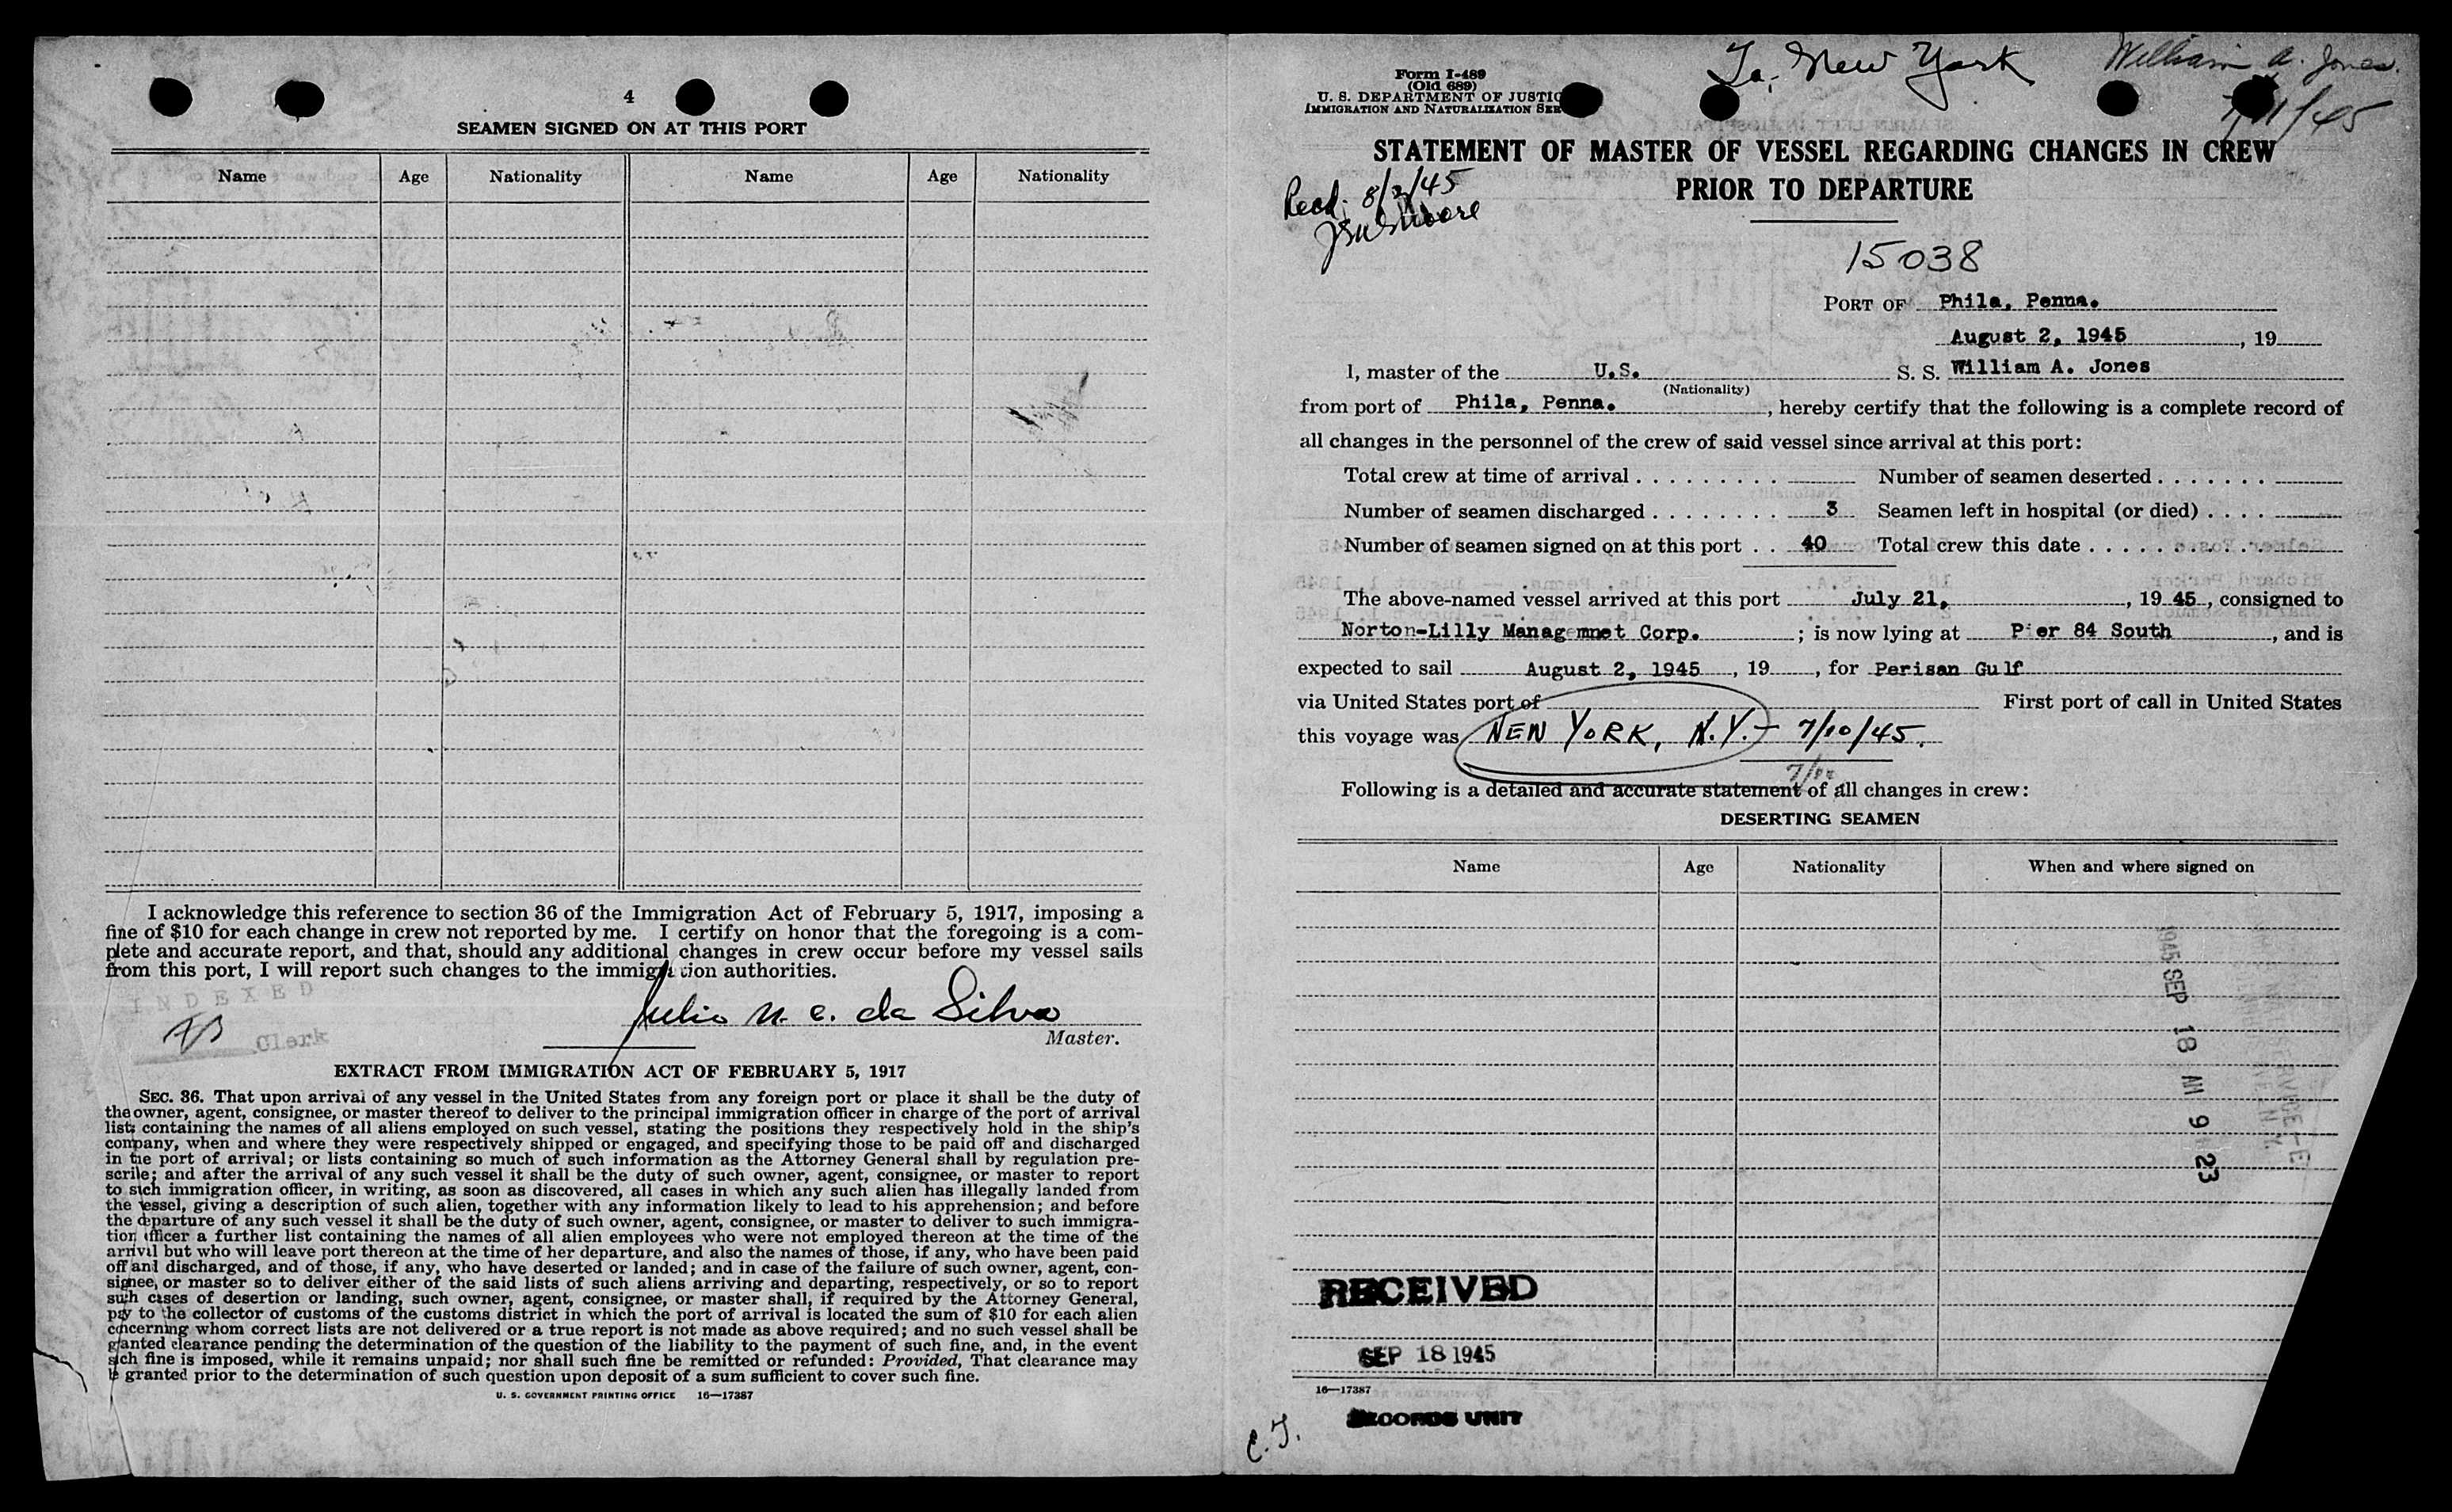 4
SEAMEN SIGNED ON AT THIS PORT
Name Age Nationality Name Age Nationality
I acknowledge this reference to section 36 of the Immigration Act of February 5, 1917, imposing a
fine of $10 for each change in crew not reported by me. I certify on honor that the foregoing is a com-
plete and accurate report, and that, should any additional changes in crew occur before my vessel sails
from this port, I will report such changes to the immigration authorities.
INDEXED
Julio N. C. da Silva
Clerk
Master.
EXTRACT FROM IMMIGRATION ACT OF FEBRUARY 5, 1917
SEC. 36. That upon arrival of any vessel in the United States from any foreign port or place it shall be the duty of
the owner, agent, consignee, or master thereof to deliver to the principal immigration officer in charge of the port of arrival
lists containing the names of all aliens employed on such vessel, stating the positions they respectively hold in the ship's
company, when and where they were respectively shipped or engaged, and specifying those to be paid off and discharged
in the port of arrival; or lists containing so much of such information as the Attorney General shall by regulation pre-
scribe; and after the arrival of any such vessel it shall be the duty of such owner, agent, consignee, or master to report
to such immigration officer, in writing, as soon as discovered, all cases in which any such alien has illegally landed from
the vessel, giving a description of such alien, together with any information likely to lead to his apprehension; and before
the departure of any such vessel it shall be the duty of such owner, agent, consignee, or master to deliver to such immigra-
tion officer a further list containing the names of all alien employees who were not employed thereon at the time of the
arrival but who will leave port thereon at the time of her departure, and also the names of those, if any, who have been paid
off and discharged, and of those, if any, who have deserted or landed; and in case of the failure of such owner, agent, con-
signee, or master so to deliver either of the said lists of such aliens arriving and departing, respectively, or so to report
such cases of desertion or landing, such owner, agent, consignee, or master shall, if required by the Attorney General,
pay to the collector of customs of the customs district in which the port of arrival is located the sum of $10 for each alien
concerning whom correct lists are not delivered or a true report is not made as above required; and no such vessel shall be
granted clearance pending the determination of the question of the liability to the payment of such fine, and, in the event
such fine is imposed, while it remains unpaid; nor shall such fine be remitted or refunded: Provided, That clearance may
be granted prior to the determination of such question upon deposit of a sum sufficient to cover such fine.
U. S. GOVERNMENT PRINTING OFFICE 16—17387
Form I-489
(Old 689)
U. S. DEPARTMENT OF JUSTIC
IMMIGRATION AND NATURALIZATION SER
To, New York
William A. Jones.
STATEMENT OF MASTER OF VESSEL REGARDING CHANGES IN CREW
PRIOR TO DEPARTURE
Recd. 8/2/45
15038
PORT OF Phila, Penna.
August 2, 1945, 19
I, master of the U.S. S. S. William A. Jones
(Nationality)
from port of Phila, Penna., hereby certify that the following is a complete record of
all changes in the personnel of the crew of said vessel since arrival at this port:
Total crew at time of arrival . . . . . . . . . Number of seamen deserted . . . . . . .
Number of seamen discharged . . . . . . . . 3 Seamen left in hospital (or died) . . . .
Number of seamen signed on at this port . . 40 Total crew this date . . . . . . . . . .
The above-named vessel arrived at this port July 21, , 19 45, consigned to
Norton-Lilly Managemnet Corp. ; is now lying at Pier 84 South , and is
expected to sail August 2, 1945 , 19 , for Perisan Gulf
via United States port of First port of call in United States
this voyage was NEW YORK, N.Y. - 7/10/45.
Following is a detailed and accurate statement of all changes in crew:
DESERTING SEAMEN
Name Age Nationality When and where signed on
1945 SEP 18 AM 9 23
RECEIVED
SEP 18 1945
16—17387
RECORDS UNIT
C.J.